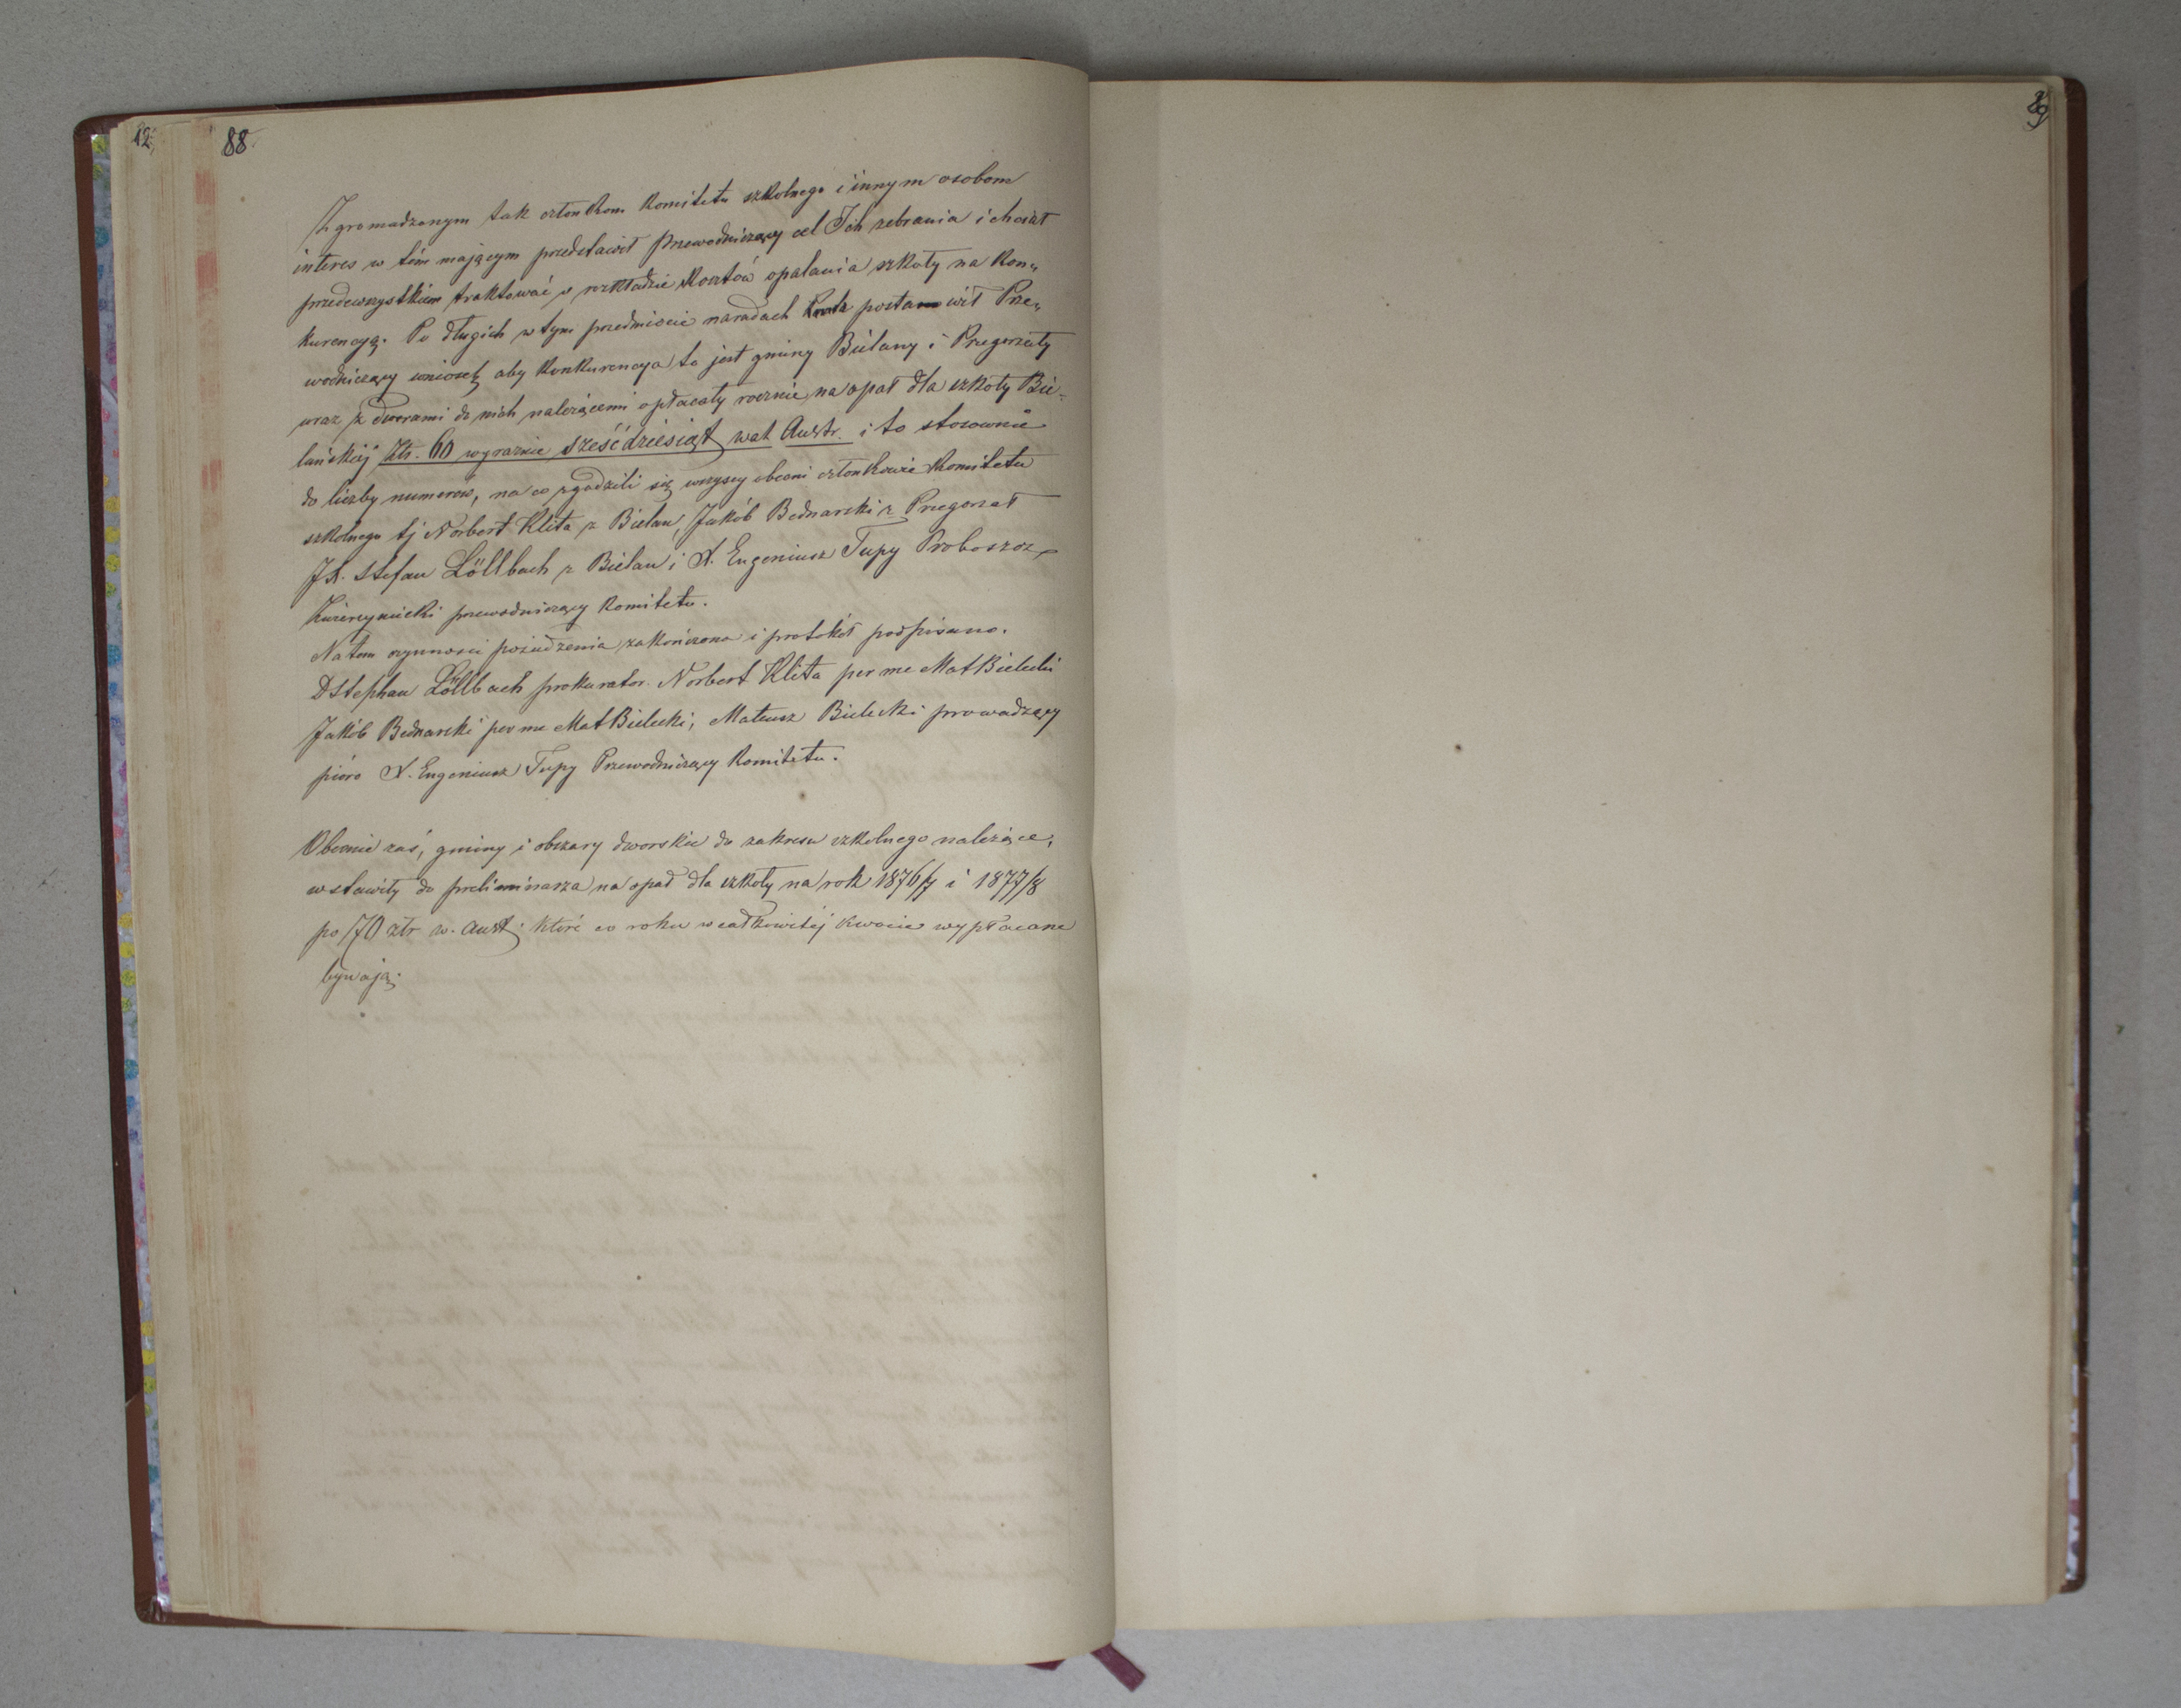 12.
88.
Zgromadzonym tak członkom Komitetu szkolnego i innym osobom
interes w tém mającym przedstawił Przewodniczący cel Ich zebrania i chciał
przedewszystkiem traktować o rozkładzie kosztów opalania szkoły na Kon„
kurencyą. Po długich w tym przedmiocie naradach postanowił Prze„
wodniczący wniosek, aby Konkurencya to jest gminy Bielany i Przegorzały
wraz z dworami do nich należącemi opłacały rocznie na opał dla szkoły Bie-
lańskiej Złr. 60 wyraznie sześćdziesiąt wal Austr. i to stosownie
do liczby numerow, na co zgodzili się wszyscy obecni członkowie Komitetu
szkolnego tj Norbert Klita z Bielan, Jakób Bednarski z Przegorzał
JX. Stefan Löllbach z Bielan i X. Eugeniusz Tupy Proboszcz
Zwierzyniecki przewodniczący Komitetu.
Na tem czynności posiedzenia zakończono i protokół podpisano.
D Stephan Löllbach prokurator. Norbert Klita per me Mat Bielecki
Jakób Bednarski per me Mat Bielecki, Mateusz Bielecki prowadzący
pióro X. Eugeniusz Tupy Przewodniczący Komitetu.
Obecnie zaś, gminy i obszary dworskie do zakresu szkolnego należące,
wstawiły do preliminarza na opał dla szkoły na rok 1876/7 i 1877/8
po 70 złr w. aust. które co roku w całkowitej kwocie wypłacane
bywają.
89